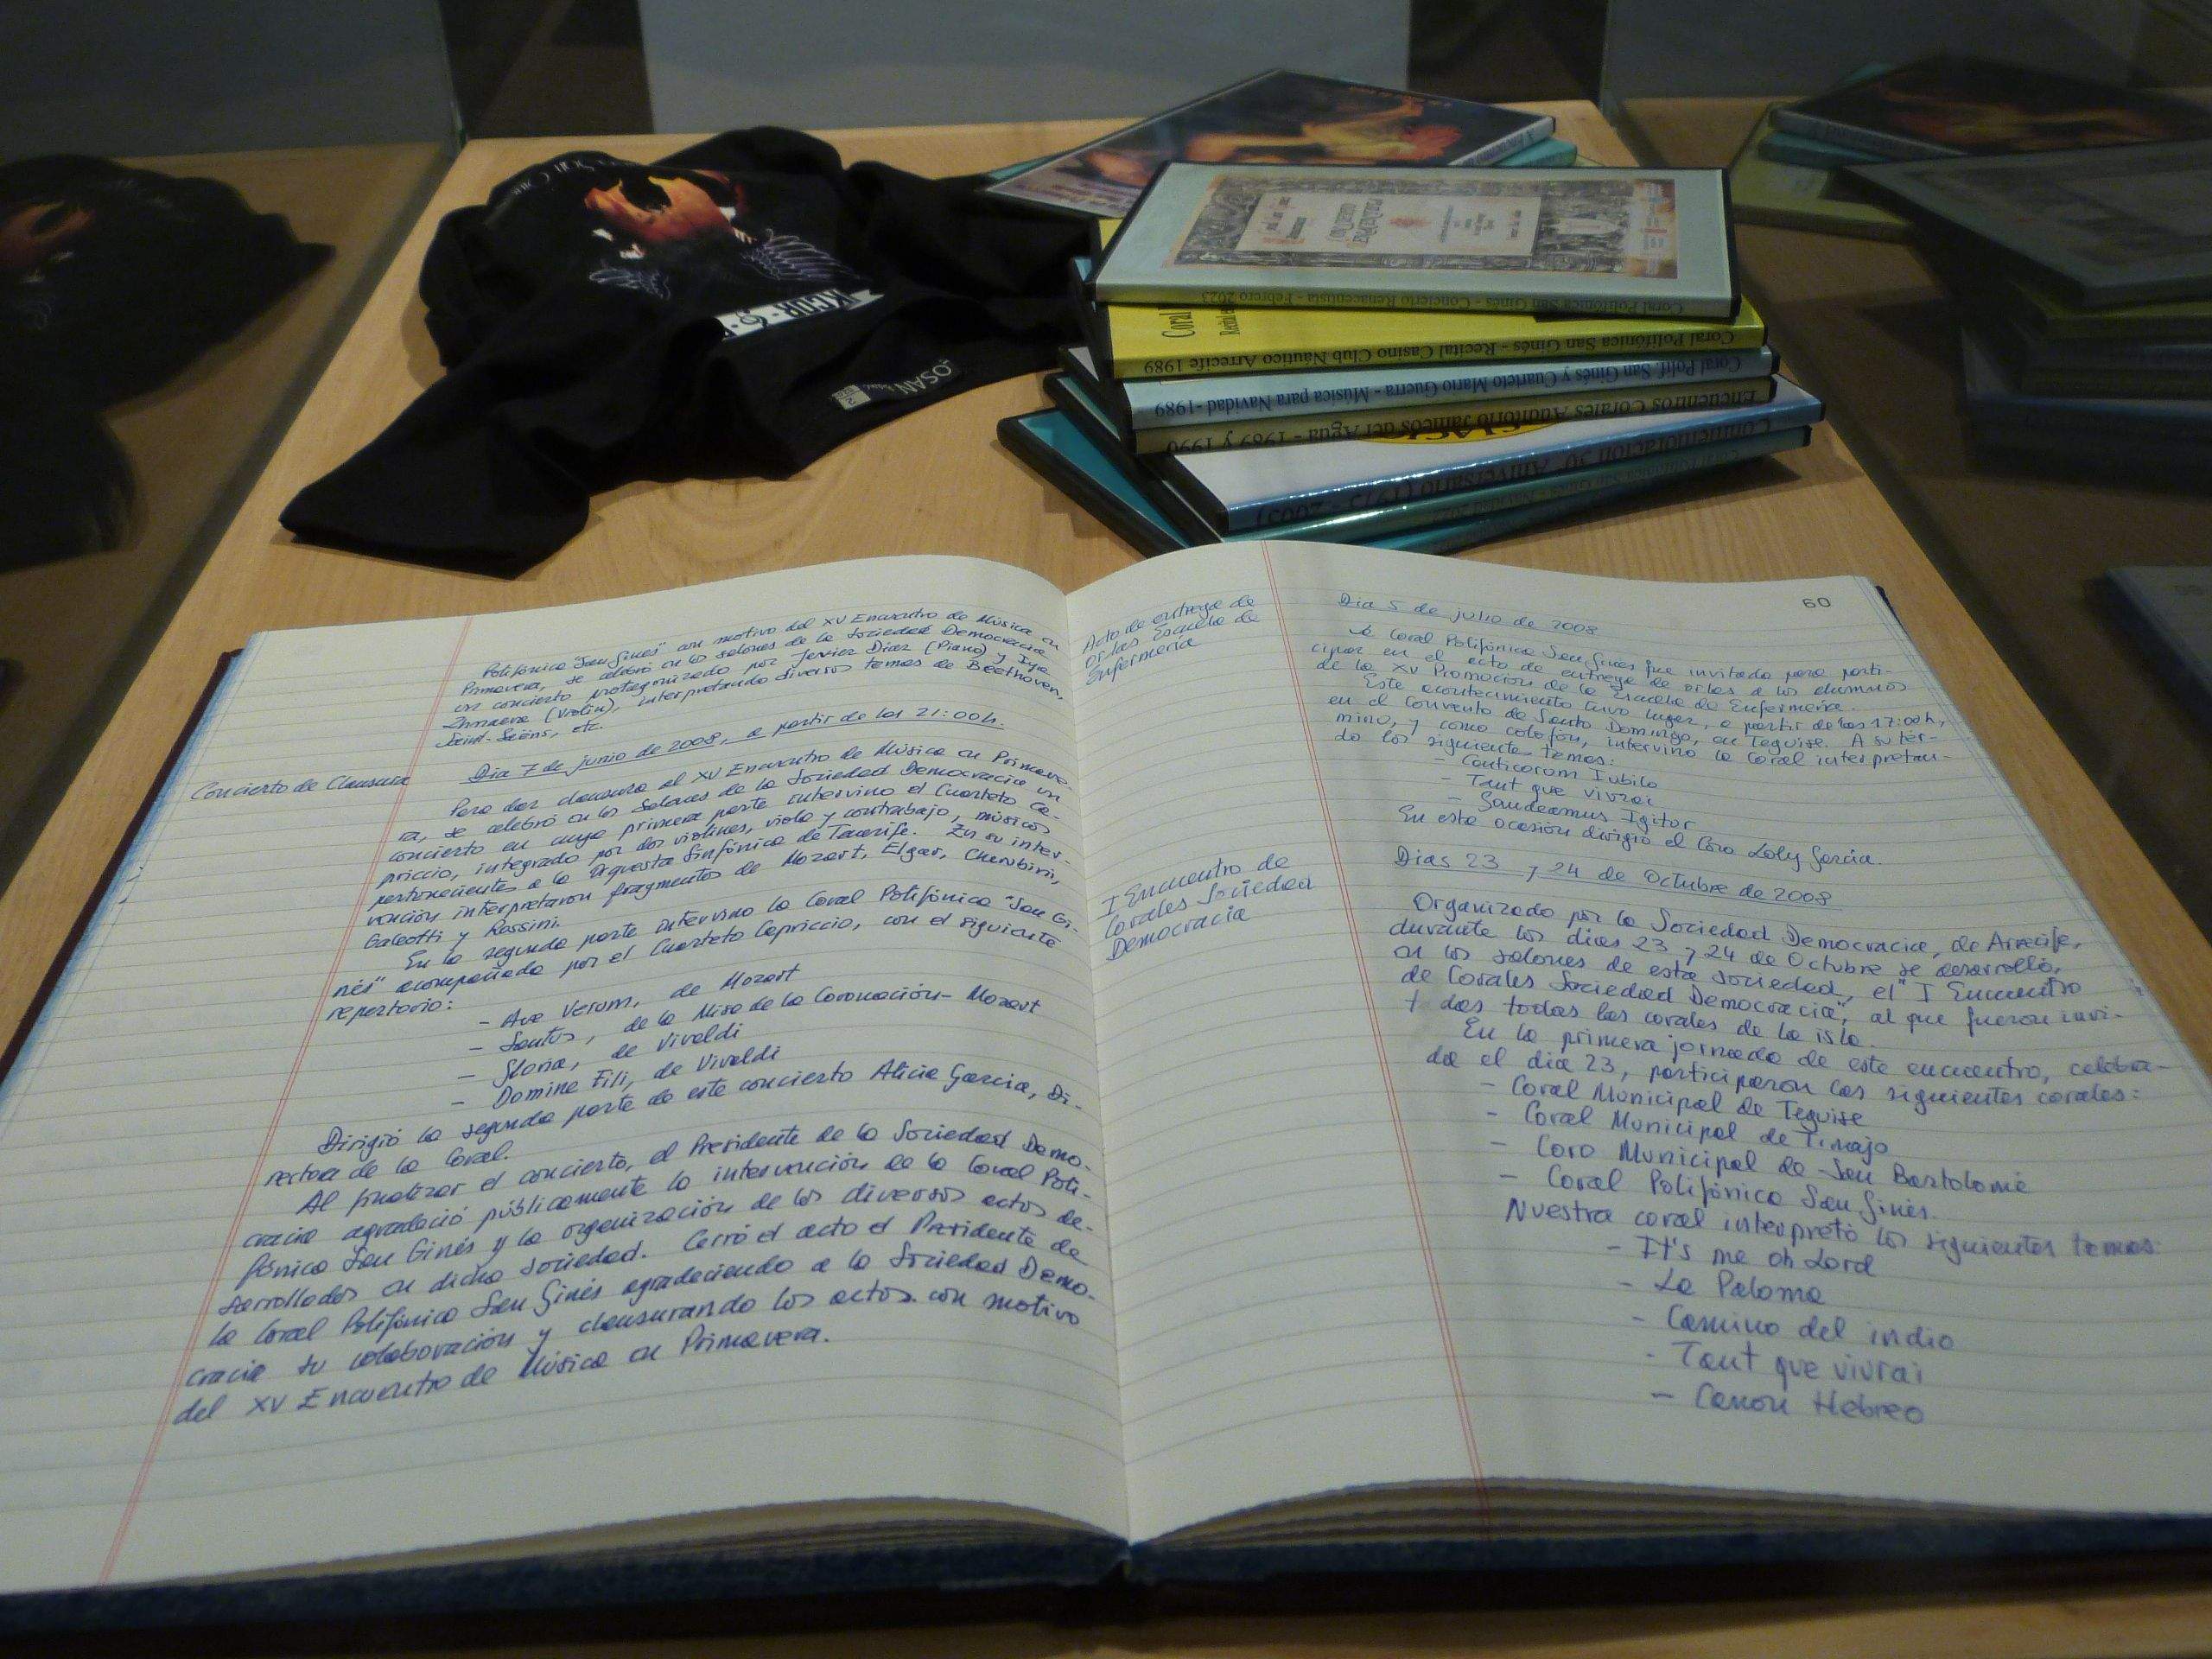 KHOR
OSAN
Coral Polifónica San Ginés - Concierto Renacentista - Febrero 2023
Coral
Recital
Coral Polifónica San Ginés - Recital Casino Club Náutico Arrecife 1989
Coral Polif. San Ginés y Cuarteto Mario Guerra - Música para Navidad - 1989
Encuentros Corales Auditorio Jameos del Agua - 1989 y 1990
Conmemoración 30 Aniversario (1975 - 2005)
Polifónica "San Ginés" con motivo del XV Encuentro de Música en
Primavera, se celebró en los salones de la Sociedad Democracia
un concierto protagonizado por Javier Díaz (Piano) y Iya
Zhmaeva (Violín), interpretando diversos temas de Beethoven,
Saint-Säens, etc.
Día 7 de junio de 2008, a partir de las 21:00h.
Concierto de Clausura
Para dar clausura al XV Encuentro de Música en Primave-
ra, se celebró en los salones de la Sociedad Democracia un
concierto en cuya primera parte intervino el Cuarteto Ca-
priccio, integrado por dos violines, viola y contrabajo, músicos
pertenecientes a la Orquesta Sinfónica de Tenerife. En su inter-
vención interpretaron fragmentos de Mozart, Elgar, Cherubini,
Galeotti y Rossini.
En la segunda parte intervino la Coral Polifónica "San Gi-
nés" acompañada por el Cuarteto Capriccio, con el siguiente
repertorio:
- Ave Verum, de Mozart
- Santus, de la Misa de la Coronación - Mozart
- Gloria, de Vivaldi
- Domine Fili, de Vivaldi
Dirigió la segunda parte de este concierto Alicia García, Di-
rectora de la Coral.
Al finalizar el concierto, el Presidente de la Sociedad Demo-
cracia agradeció públicamente la intervención de la Coral Poli-
fónica San Ginés y la organización de los diversos actos de-
sarrollados en dicha sociedad. Cerró el acto el Presidente de
la Coral Polifónica San Ginés agradeciendo a la Sociedad Demo-
cracia su colaboración y clausurando los actos con motivo
del XV Encuentro de Música en Primavera.
60
Acto de entrega de
orlas Escuela de
Enfermería
Día 5 de julio de 2008
La Coral Polifónica San Ginés fue invitada para parti-
cipar en el acto de entrega de orlas a los alumnos
de la XV Promoción de la Escuela de Enfermería.
Este acontecimiento tuvo lugar, a partir de las 17:00h,
en el Convento de Santo Domingo, en Teguise. A su tér-
mino, y como colofón, intervino la Coral interpretan-
do los siguientes temas:
- Canticorum Iubilo
- Tant que vivrai
- Gaudeamus Igitor
En esta ocasión dirigió el Coro Loly García.
I Encuentro de
Corales Sociedad
Democracia
Días 23 y 24 de Octubre de 2008
Organizado por la Sociedad Democracia, de Arrecife,
durante los días 23 y 24 de Octubre se desarrolló,
en los salones de esta sociedad, el "I Encuentro
de Corales Sociedad Democracia", al que fueron invi-
tadas todas las corales de la isla.
En la primera jornada de este encuentro, celebra-
da el día 23, participaron las siguientes corales:
- Coral Municipal de Teguise
- Coral Municipal de Tinajo
- Coro Municipal de San Bartolomé
- Coral Polifónica San Ginés.
Nuestra coral interpretó los siguientes temas:
- It's me oh Lord
- La Paloma
- Camino del indio
- Tant que vivrai
- Canon Hebreo